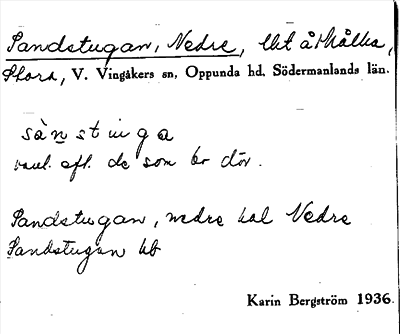 Sandstugan, Nedre, lht å Hålla,
Stora, V. Vingåkers sn, Oppunda hd, Södermanlands län.
sànstuga
vanl. efl. de som bo där.
Sandstugan, nedre kal Nedre
Sandstugan hb
Karin Bergström 1936.